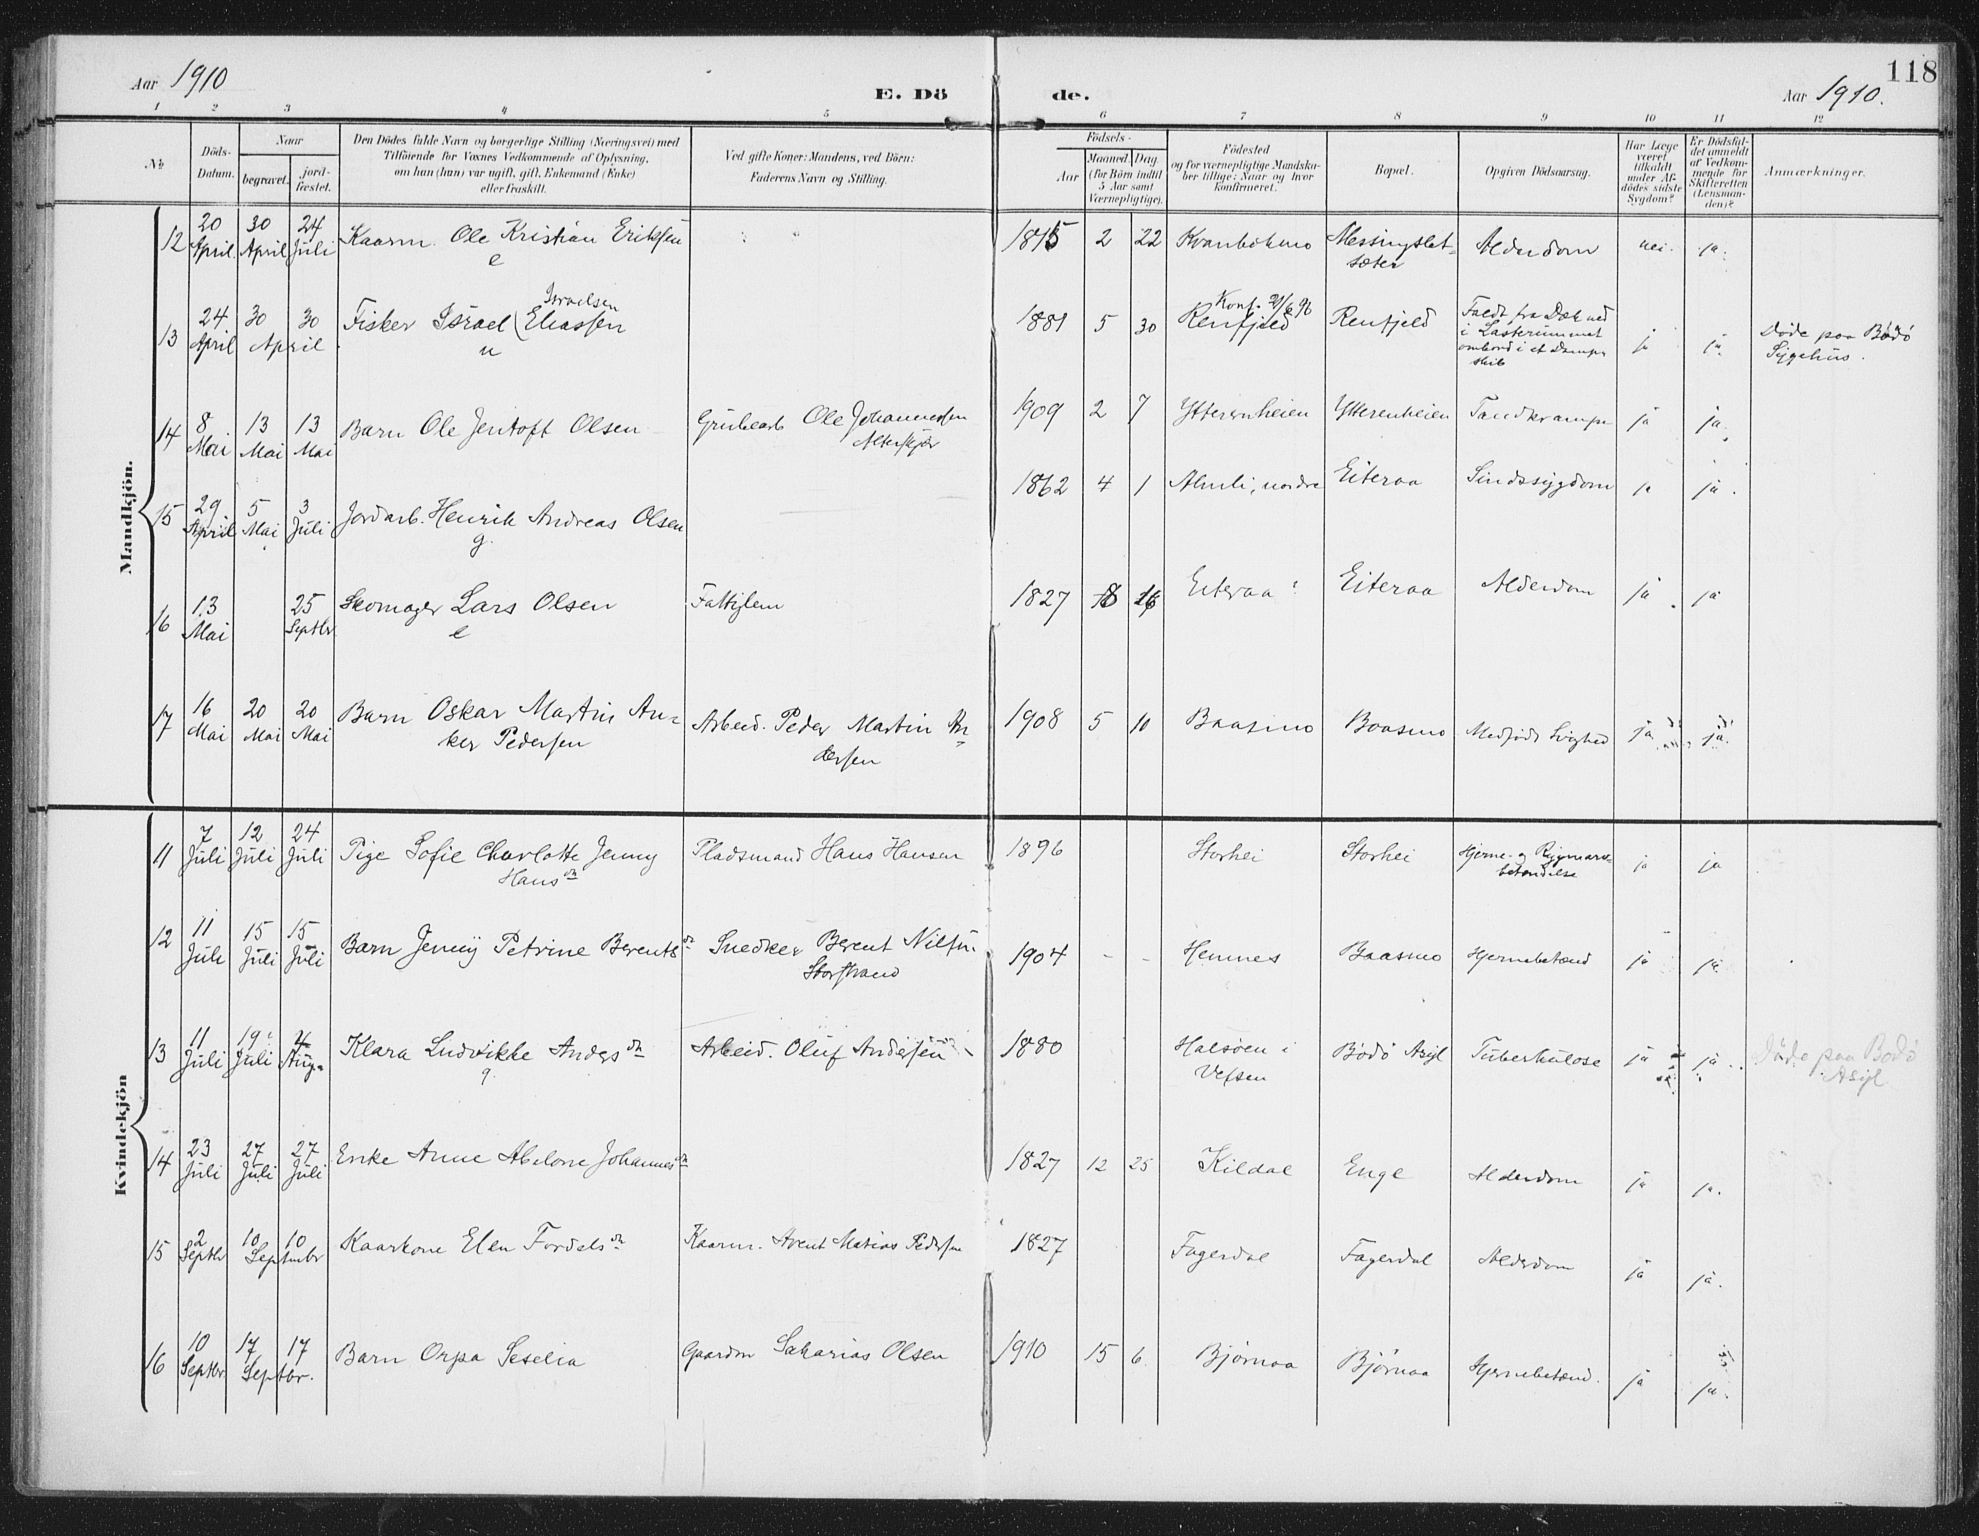 118
Aar 1910
E. Dö
de.
Aar 1910.
1 2 3 4 5 6 7 8 9 10 11 12
No.
Döds-
Datum.
Naar
begravet.
jord-
fæstet.
Den Dödes fulde Navn og borgerlige Stilling (Næringsvei) med
Tilföiende for Voxnes Vedkommende af Oplysning,
om han (hun) var ugift, gift, Enkemand (Enke)
eller fraskilt.
Ved gifte Koner: Mandens, ved Börn:
Faderens Navn og Stilling.
Födsels-
Aar
Maaned. Dag.
(for Börn indtil
5 Aar samt
Værnepligtige).
Födested
og for værnepligtige Mandska-
ber tillige: Naar og hvor
konfirmeret.
Bopæl.
Opgiven Dödsaarsag.
Har Læge
været
tilkaldt
under Af-
dödes sidste
Sygdom?
Er Dödsfal-
det anmeldt
af Vedkom-
mende for
Skifteretten
(Lensman-
den)?
Anmærkninger.
Mandkjön.
12 20 April 30 April 24 Juli Kaarm. Ole Kristian Eriksen e 1815 2 22 Messingslet- sæter Alderdom nei. ja.
13 24 April 30 30 April Fisker Israel (Israelsen Eliassen u 1881 5 30 Konf. Renfjeld Renfjeld Faldt fra Dæk ned i Lasterummet ombord i et Damps- skib ja ja. Døde paa Bodö Sygehus.
14 8 Mai 13 Mai 13 Mai Barn Ole Jentoft Olsen Grubearb Ole Johannessen Alterskjær 1909 2 7 Ytterenheien Ytterenheien Tandkrampe ja ja.
15 29 April 5 Mai 3 Juli Jordarb. Henrik Andreas Olsen g. 1862 4 1 Almli, nordre Eiteraa Sindssygdom ja ja.
16 13 Mai 25 Septbr Skomager Lars Olsen e Fattiglem 1827 Eiteraa Eiteraa Alderdom ja ja
17 16 Mai 20 Mai 20 Mai Barn Oskar Martin An- ker Pedersen Arbeid. Peder Martin An- dersen 1908 5 10 Baasmo Baasmo Medfødt Svaghed ja ja.
Kvindekjön
11 7 Juli 12 Juli 24 Juli Pige Sofie Charlotte Jenny Hansdn Pladsmand Hans Hansen 1896 Storhei Storhei Hjerne- og Rygmarvs- betændelse ja ja
12 11 Juli 15 Juli 15 Juli Barn Jenny Petrine Berentsdn Snedker Berent Nilsen Storstrand 1904 - - Hemnes Baasmo Hjernebetænd ja ja.
13 11 Juli 19 Juli 4 Aug. Klara Ludvikke Andersdn g Arbeid. Oluf Andersen 1880 Halsøen i Vefsen Bodö Asyl Tuberkulose ja ja. Døde paa Bodö Asyl
14 23 Juli 27 Juli 27 Juli Enke Anne Abelone Johannesdn 1827 12 25 Kildal Enge Alderdom ja ja.
15 2 Septbr 10 10 Septmbr Kaarkone Elen Fordelsdn Kaarm. Arent Matias Pedersen 1827 Fagerdal Fagerdal Alderdom ja ja.
16 10 Septbr 17 17 Septbr. Barn Orpa Seselia Gaardm Sakarias Olsen 1910 15 6. Bjørnaa Bjørnaa Hjernebetænd. ja ja.